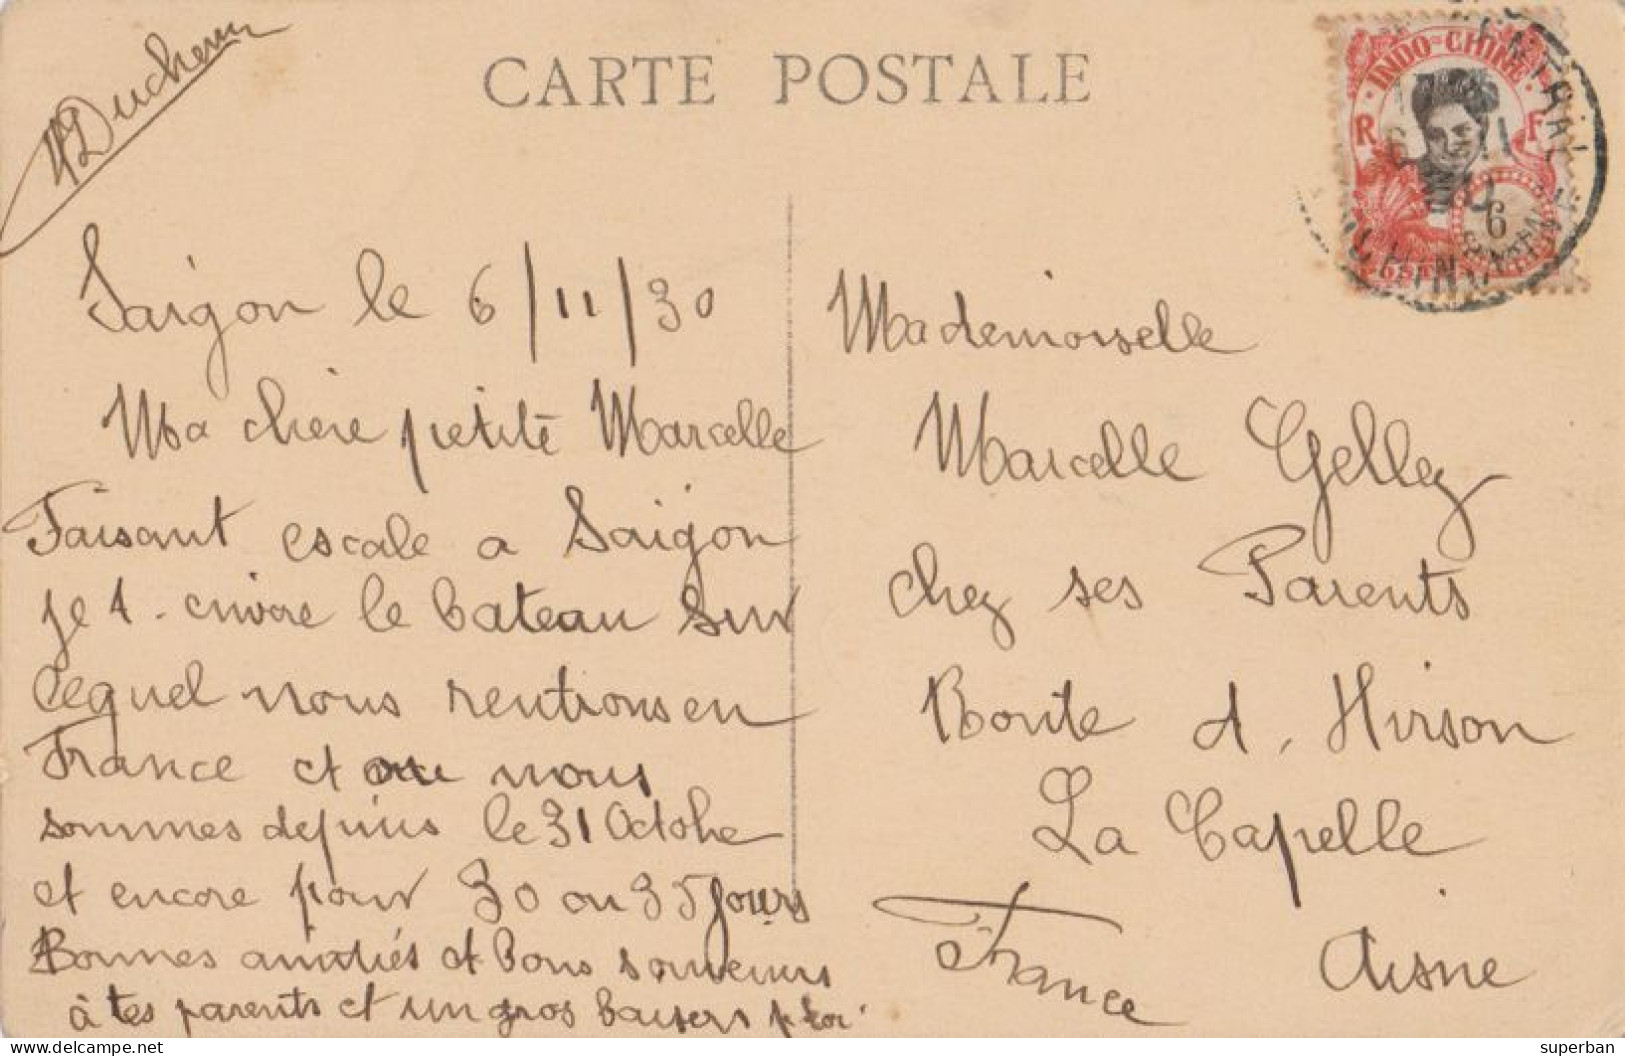 CARTE POSTALE
Duchenne
INDO-CHINE
R F
6
Saigon le 6/11/30
Ma chère petite Marcelle
Faisant escale a Saigon
je t. envore le bateau sur
lequel nous rentrons en
France et nous
sommes depuis le 31 Octobe
et encore pour 30 ou 35 jours
Bonnes amitiés et bons souvenirs
à tes parents et un gros baisers p toi
Mademoiselle
Marcelle Gelley
chez ses Parents
Route d, Hirson
La Capelle
Aisne
France
delcampe.net
superban